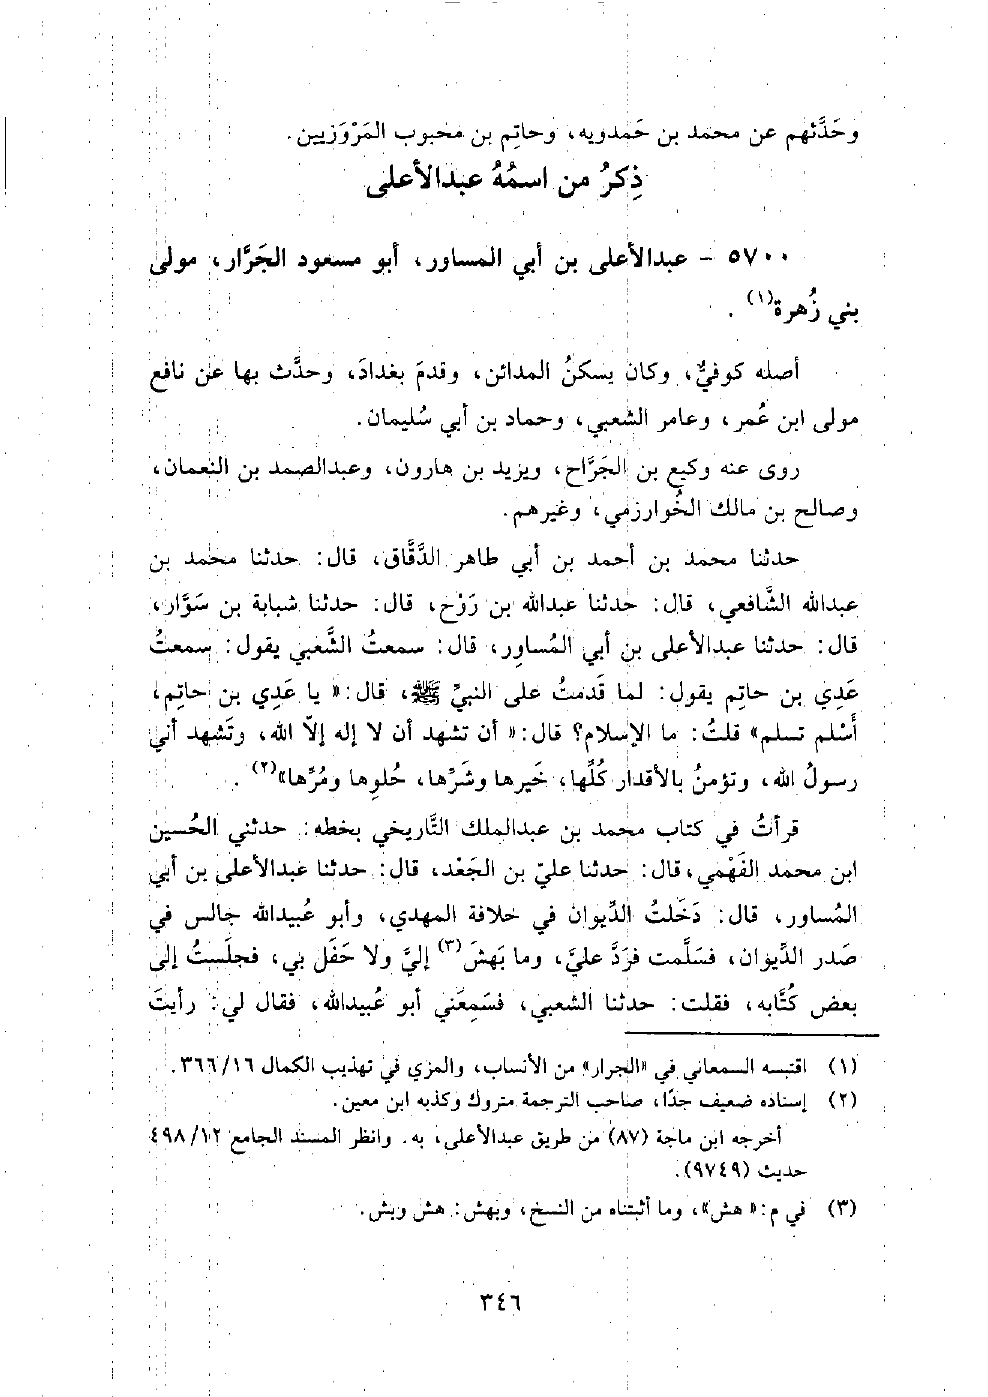 وحَدَّثهم عن محمد بن حَمدويه، وحاتِم بن محبوب المَرْوَزيين.
ذِكرُ من اسمُهُ عبدالأعلى
٥٧٠٠ - عبدالأعلى بن أبي المساور، أبو مسعود الجَرَّار، مولى
بني زُهرة(١) .
أصله كوفيٌّ، وكان يسكنُ المدائن، وقدمَ بغدادَ، وحدَّث بها عن نافع
مولى ابن عُمر، وعامر الشَّعبي، وحماد بن أبي سُليمان.
روى عنه وكيع بن الجَرَّاح، ويزيد بن هارون، وعبدالصمد بن النعمان،
وصالح بن مالك الخُوارزمي، وغيرهم.
حدثنا محمد بن أحمد بن أبي طاهر الدَّقَّاق، قال: حدثنا محمد بن
عبدالله الشَّافعي، قال: حدثنا عبدالله بن رَوْح، قال: حدثنا شبابة بن سَوَّار،
قال: حدثنا عبدالأعلى بن أبي المُساوِر، قال: سمعتُ الشَّعبي يقول: سمعتُ
عَدِي بن حاتِم يقول: لما قَدمتُ على النبيِّ ﷺ، قال:« يا عَدِي بن حاتِم،
أَسْلم تسلم» قلتُ: ما الإسلام؟ قال:« أن تشهد أن لا إله إلاّ الله، وتَشهد أني
رسولُ الله، وتؤمنُ بالأقدار كُلِّها، خَيرها وشَرِّها، حُلوِها ومُرِّها»(٢) .
قرأتُ في كتاب محمد بن عبدالملك التَّاريخي بخطه: حدثني الحُسين
ابن محمد الفَهْمي، قال: حدثنا عليّ بن الجَعْد، قال: حدثنا عبدالأعلى بن أبي
المُساور، قال: دَخَلتُ الدِّيوان في خلافة المهدي، وأبو عُبيدالله جالس في
صَدر الدِّيوان، فسَلَّمت فرَدَّ عليَّ، وما بَهَشَ(٣) إليَّ ولا حَفَل بي، فجلَستُ إلى
بعض كُتَّابه، فقلت: حدثنا الشعبي، فسَمِعَني أبو عُبيدالله، فقال لي: رأيتَ
(١) اقتبسه السمعاني في «الجرار» من الأنساب، والمزي في تهذيب الكمال ١٦/ ٣٦٦.
(٢) إسناده ضعيف جدًا، صاحب الترجمة متروك وكذبه ابن معين.
أخرجه ابن ماجة (٨٧) من طريق عبدالأعلى، به. وانظر المسند الجامع ١٢/ ٤٩٨
حديث (٩٧٤٩).
(٣) في م:« هش»، وما أثبتناه من النسخ، وبهش: هش وبش.
٣٤٦